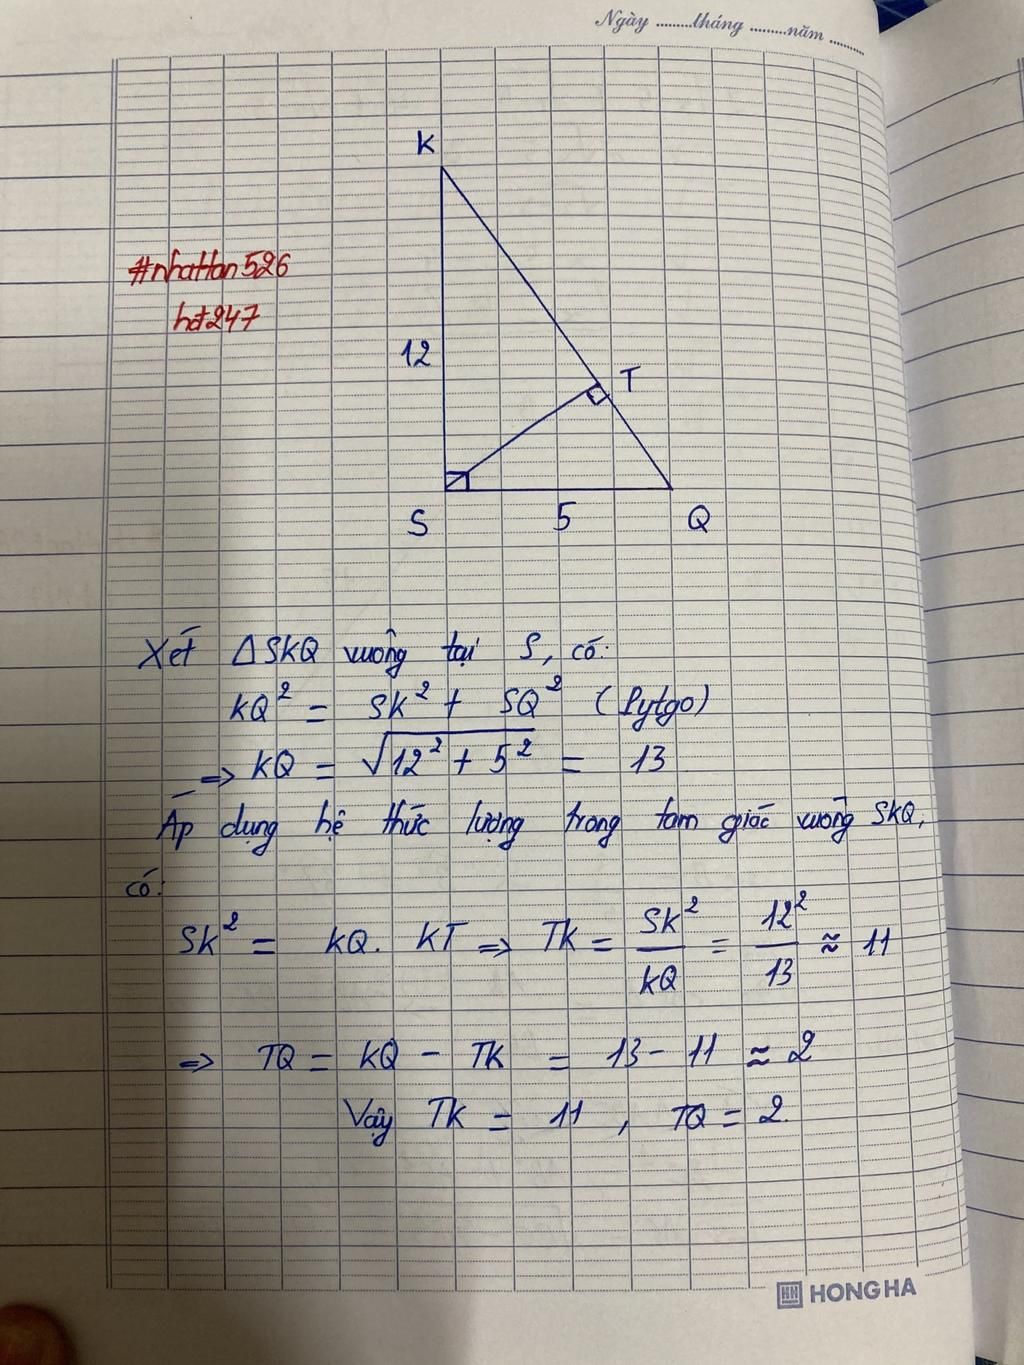 Ngày .........tháng .........năm .........
K
#nhatlan526
hđ247
12
T
S
5
Q
Xét ΔSKQ vuông tại S, có:
KQ² = SK² + SQ² (Pytgo)
=> KQ = √12² + 5² = 13
Áp dụng hệ thức lượng trong tam giác vuông SKQ,
có:
SK² = KQ. KT => TK = SK²/KQ = 12²/13 ≈ 11
=> TQ = KQ - TK = 13 - 11 ≈ 2
Vậy TK = 11, TQ = 2.
HH HONG HA